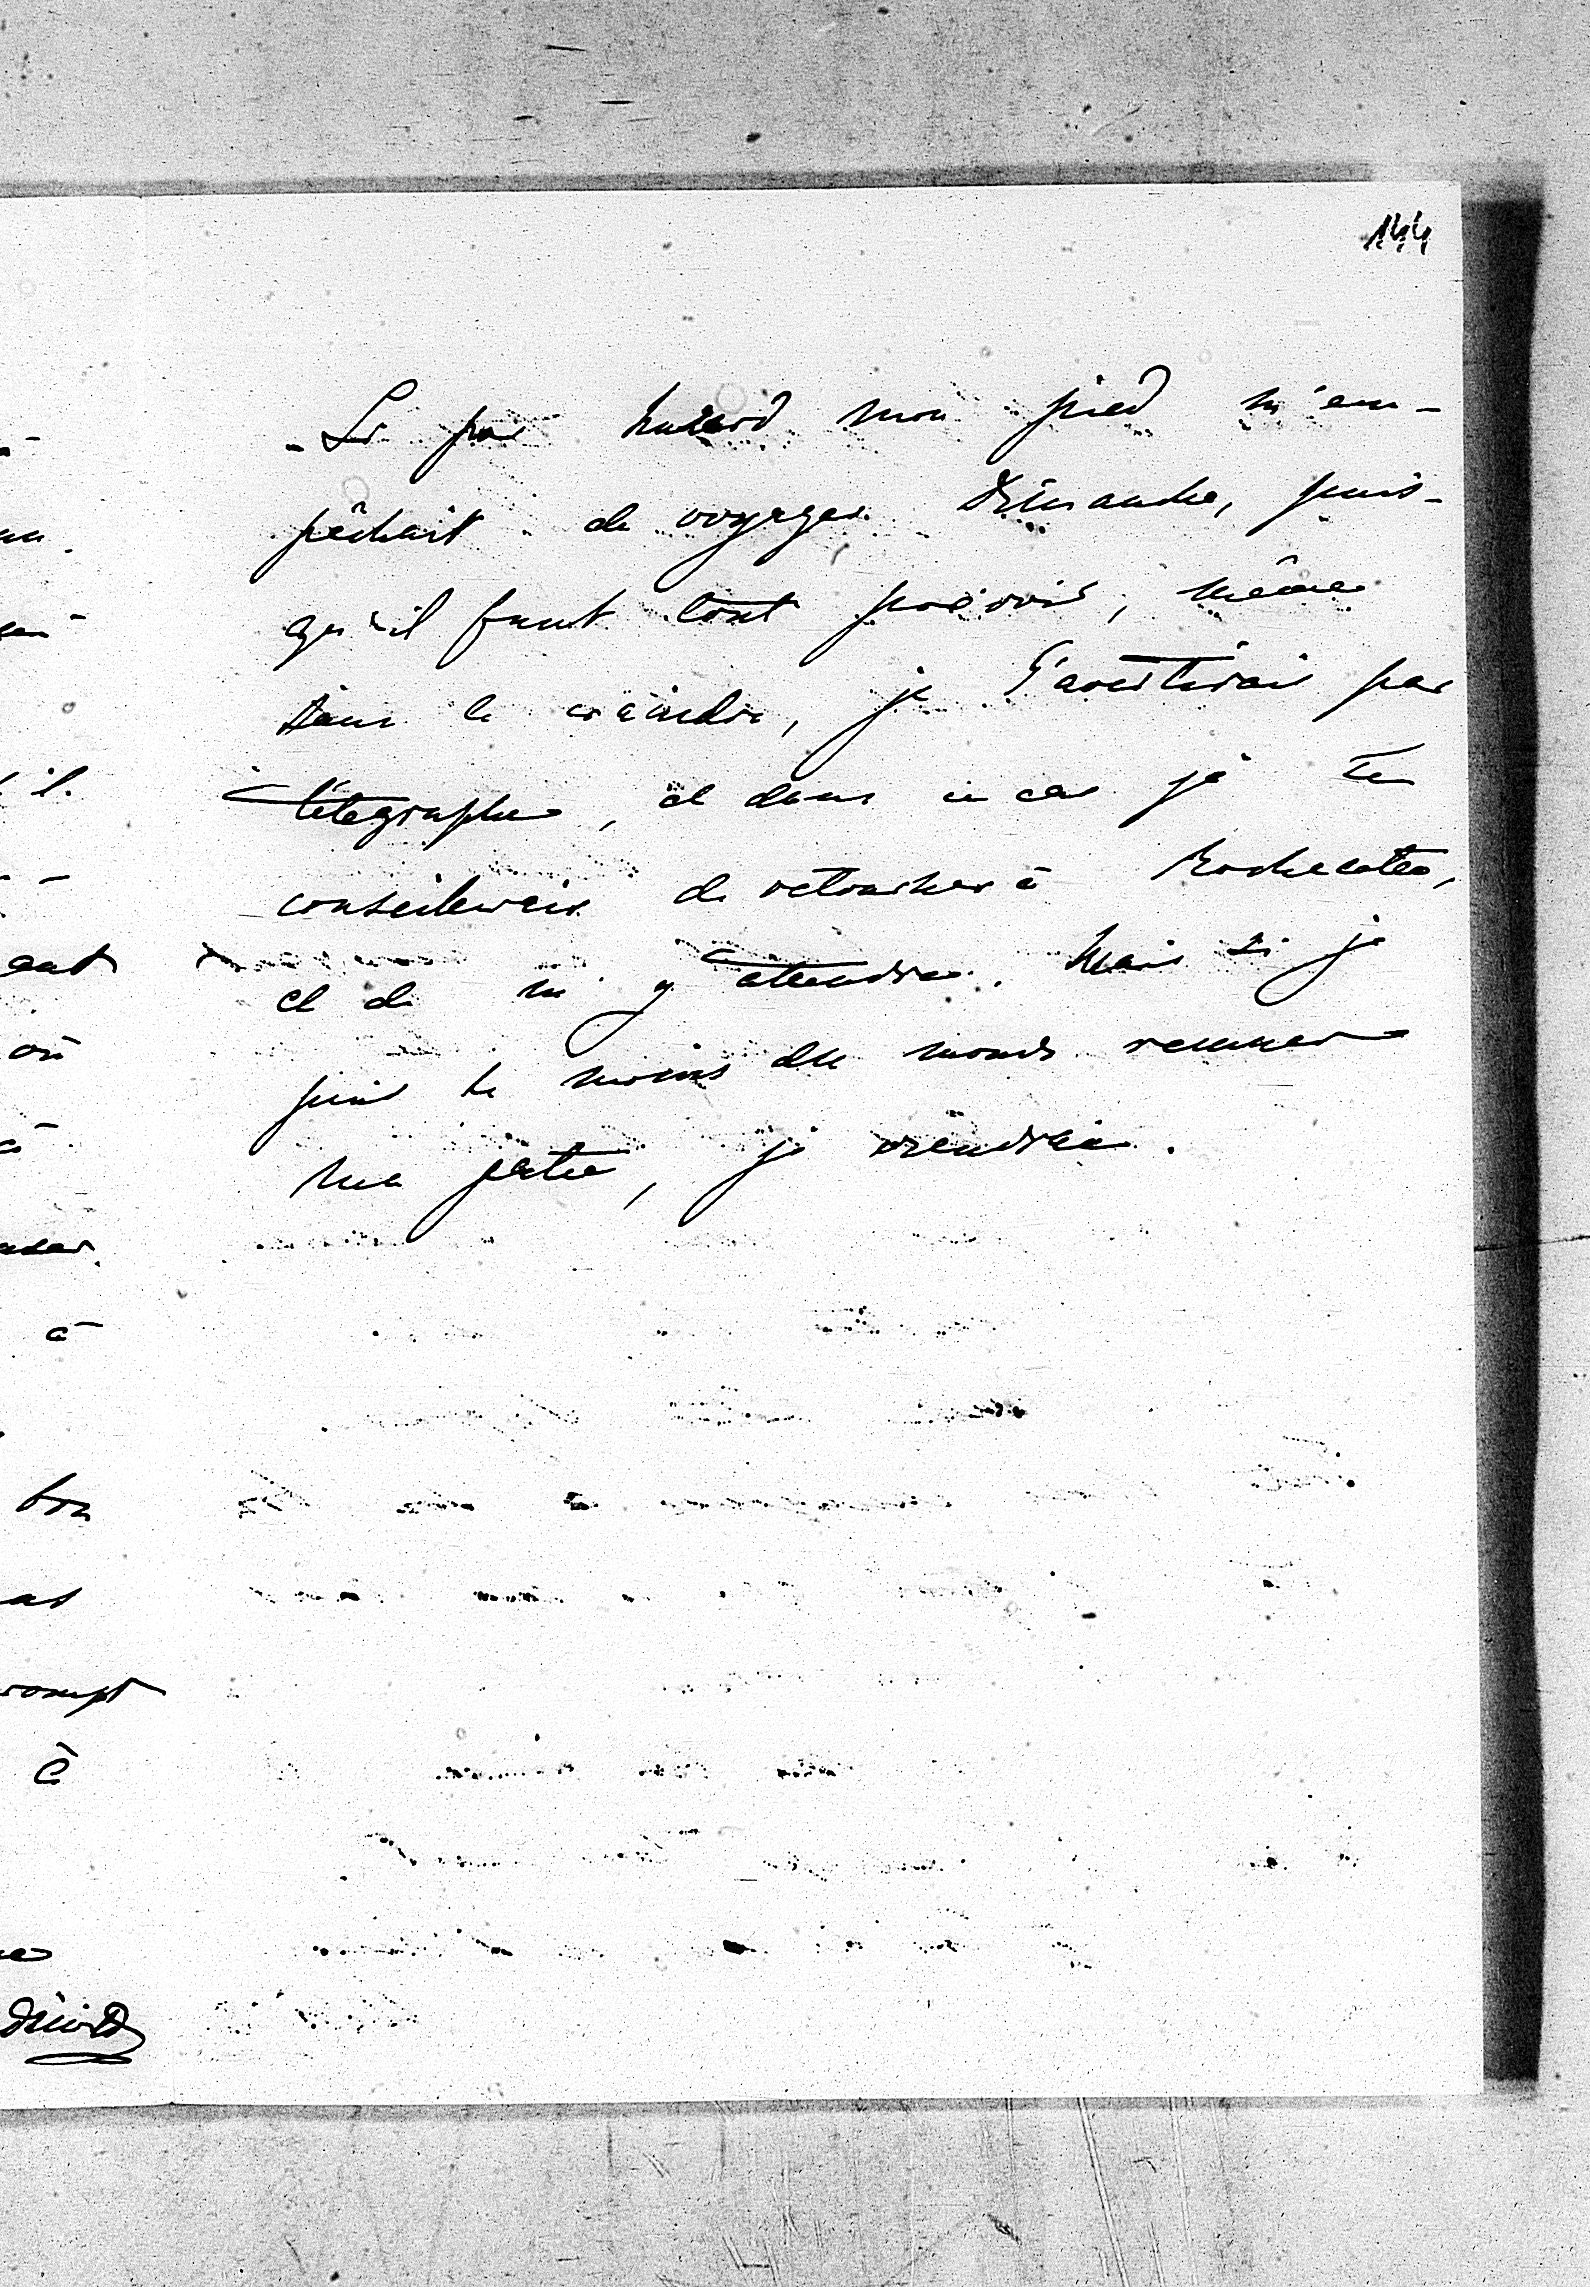 144
- Si par hasard mon pied m'em-
pêchait de voyager Dimanche, puis-
qu'il faut tout prévoir, même
sans le craindre, je t'avertirais par
télégraphe, et dans ce cas je te
conseillerais de retourner à Rochecotte,
et de m'y attendre. Mais si je
puis le moins du monde remuer
ma patte, je viendrai.